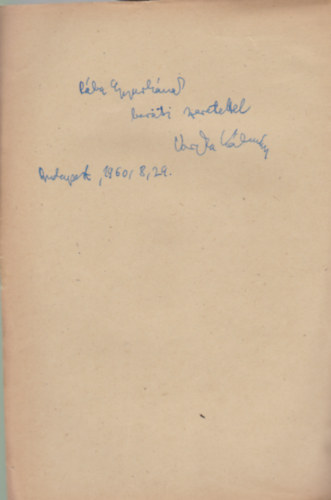 Rába Györgynének
baráti szeretettel
Vargha Kálmán
Budapest, 1960. 8. 29.